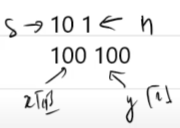 S → 10 1 ← n
100 100
x[i] y[i]